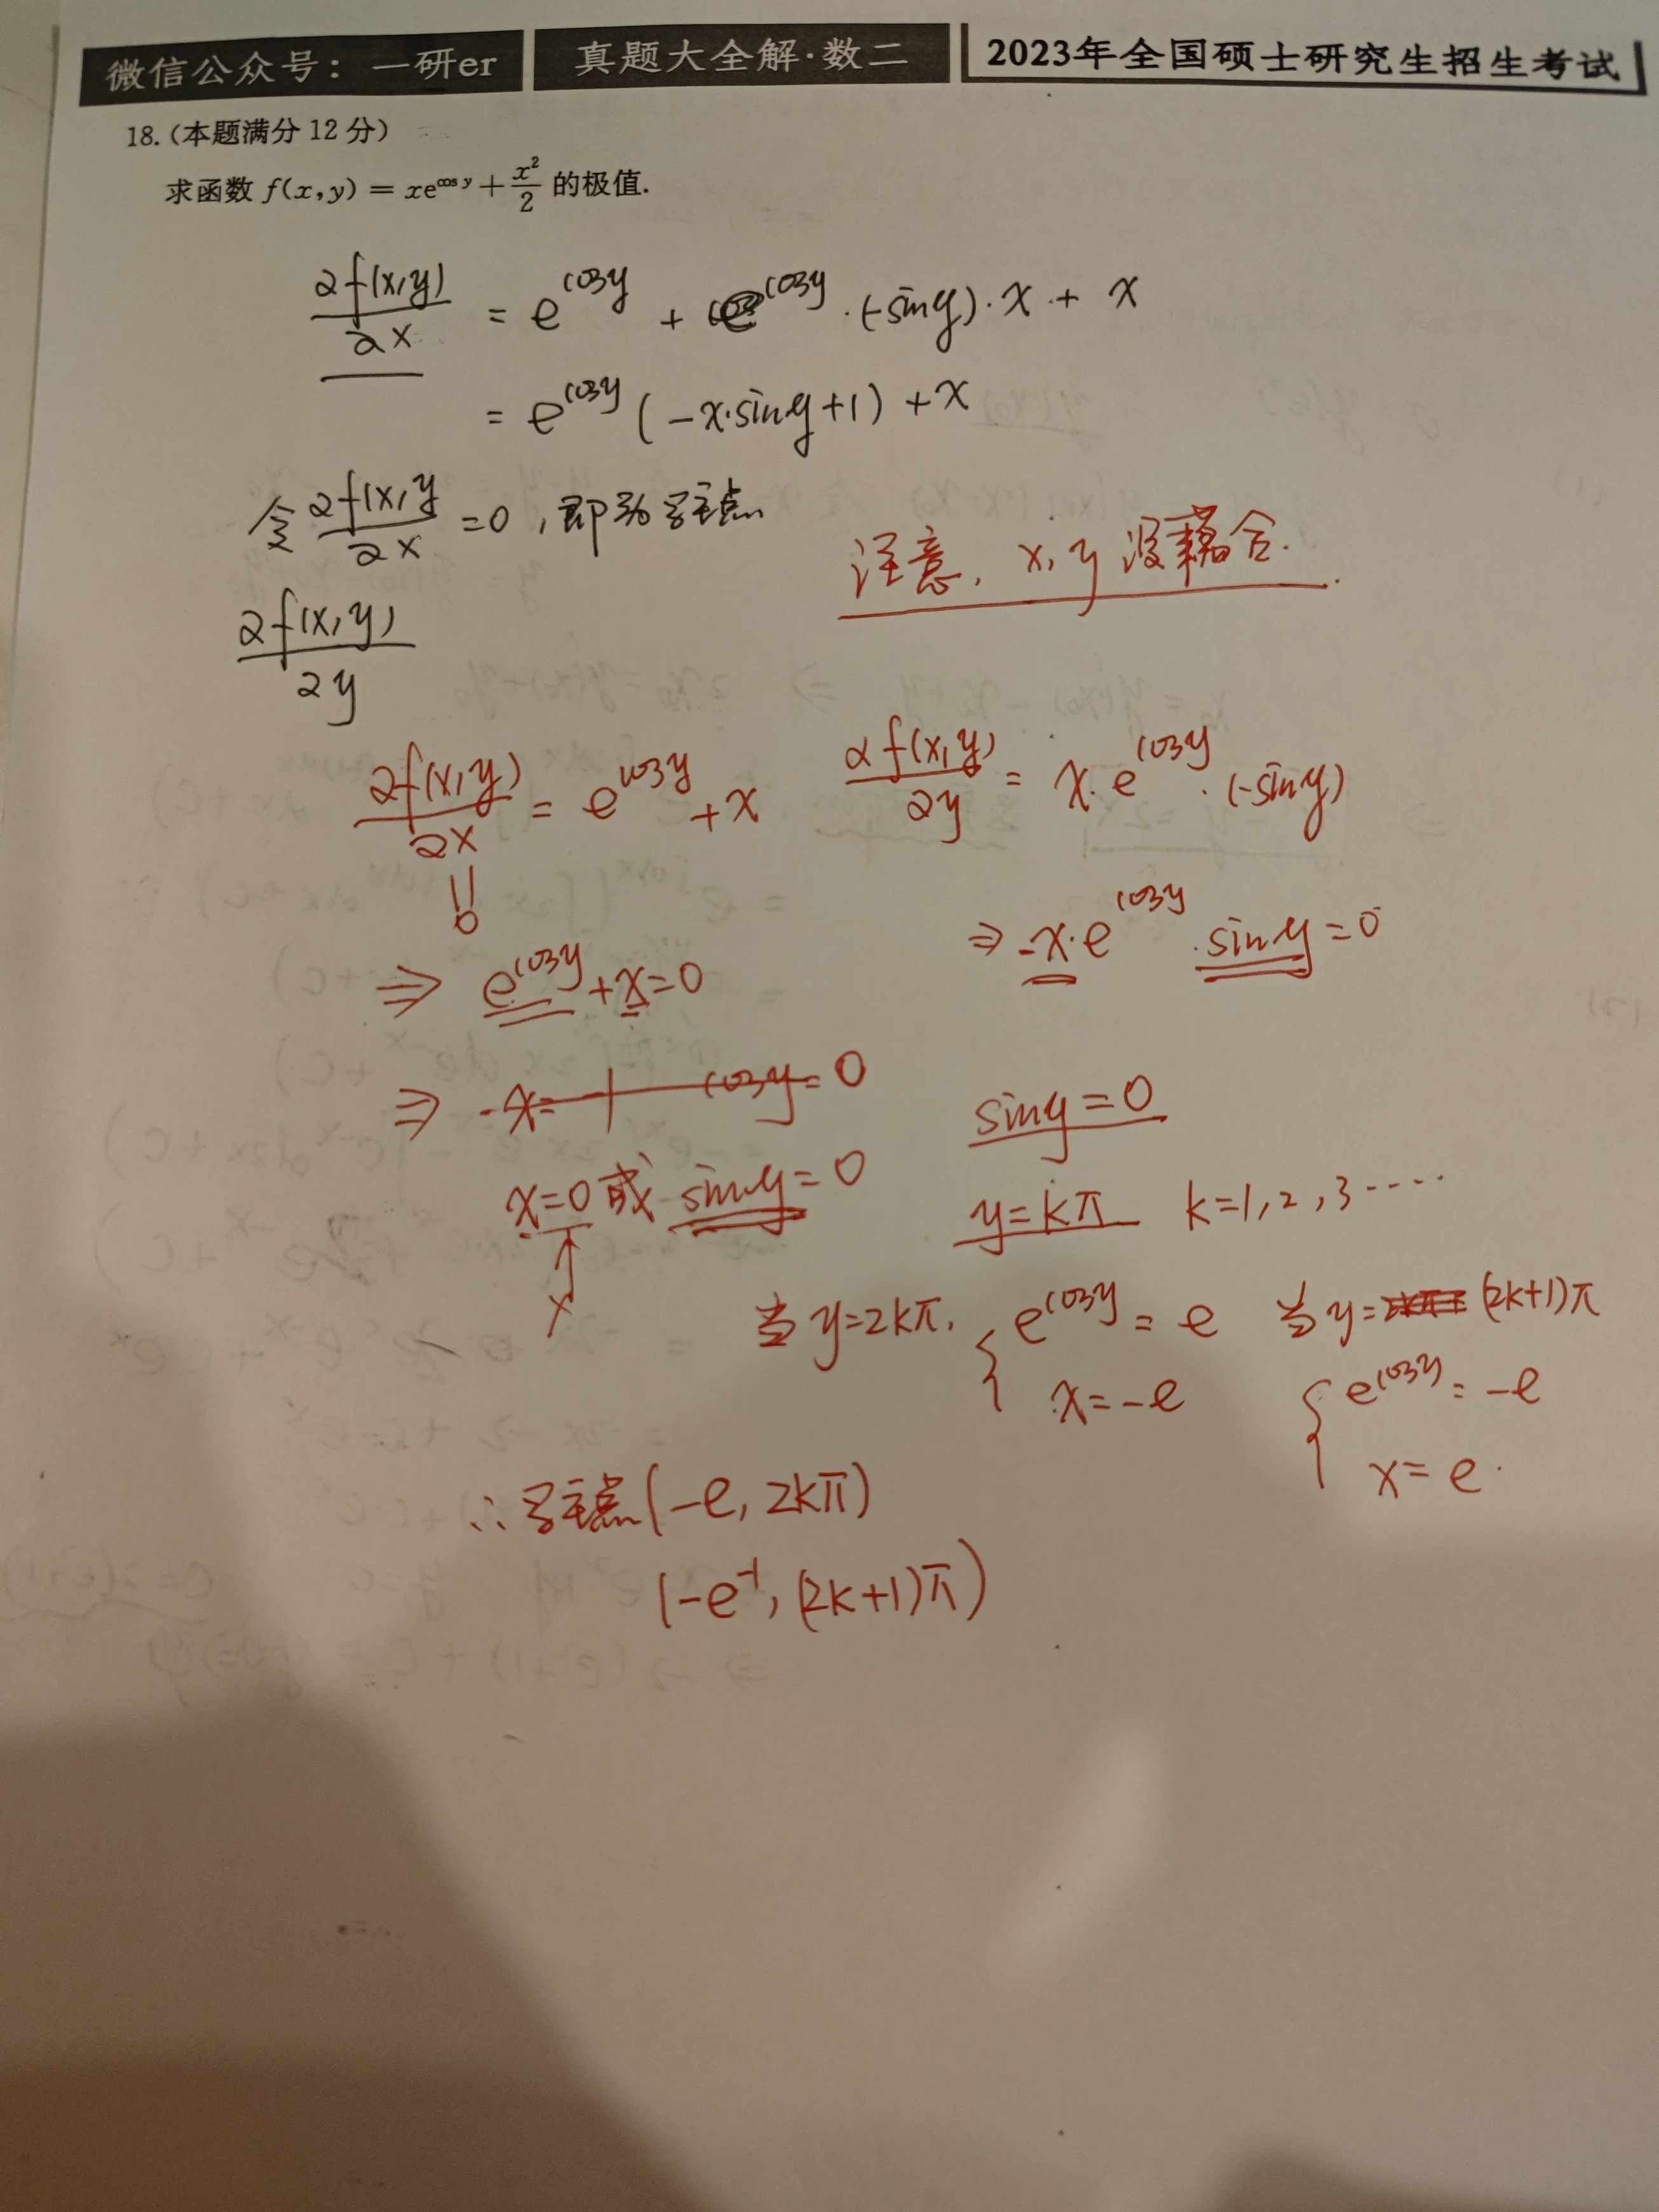 微信公众号：一研er 真题大全解·数二 2023年全国硕士研究生招生考试
18.(本题满分 12 分)
求函数 f(x,y) = xe^{cos y} + x²/2 的极值.
∂f(x,y)/∂x = e^{cosy} + e^{cosy}·(-siny)·x + x
= e^{cosy}(-x·siny+1)+x
令 ∂f(x,y/∂x =0,即为驻点
注意, x,y 没耦合.
∂f(x,y)/∂y
∂f(x,y)/∂x = e^{cosy}+x ∂f(x,y)/∂y = x·e^{cosy}·(-siny)
⇒ e^{cosy}+x=0 ⇒ -x·e^{cosy}·siny=0
⇒ -x=-1 cosy=0 siny=0
x=0 或 siny=0 y=kπ k=1,2,3····
当 y=2kπ, { e^{cosy}=e 当 y= (2k+1)π
x=-e { e^{cosy}=-e
x=e.
∴驻点(-e, 2kπ)
(-e^{-1}, (2k+1)π)